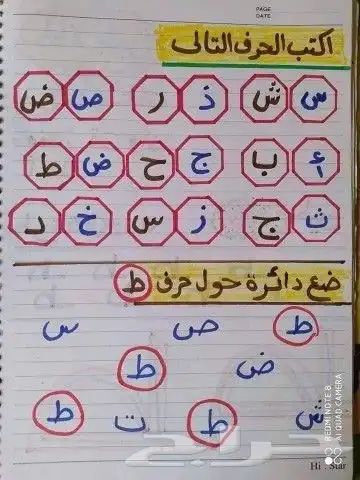 PAGE
DATE
اكتب الحرف التالى
س ش ذ ر ص ض
أ ب ج ح ض ط
ث ج ز س خ د
ضع دائرة حول حرف ط
ط ص س
ض ط
ش ط ت ط
حراج
REDMI NOTE 8
AI QUAD CAMERA
Hi . Star